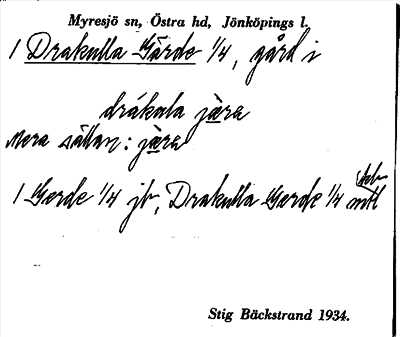 Myresjö sn, Östra hd, Jönköpings l.
1 Drakulla Gärde 1/4, gård i
drákula jæra
Mera sällan: jæra
1 Gerde 1/4 jb, Drakulla Gerde 1/4 mtl
Stig Bäckstrand 1934.